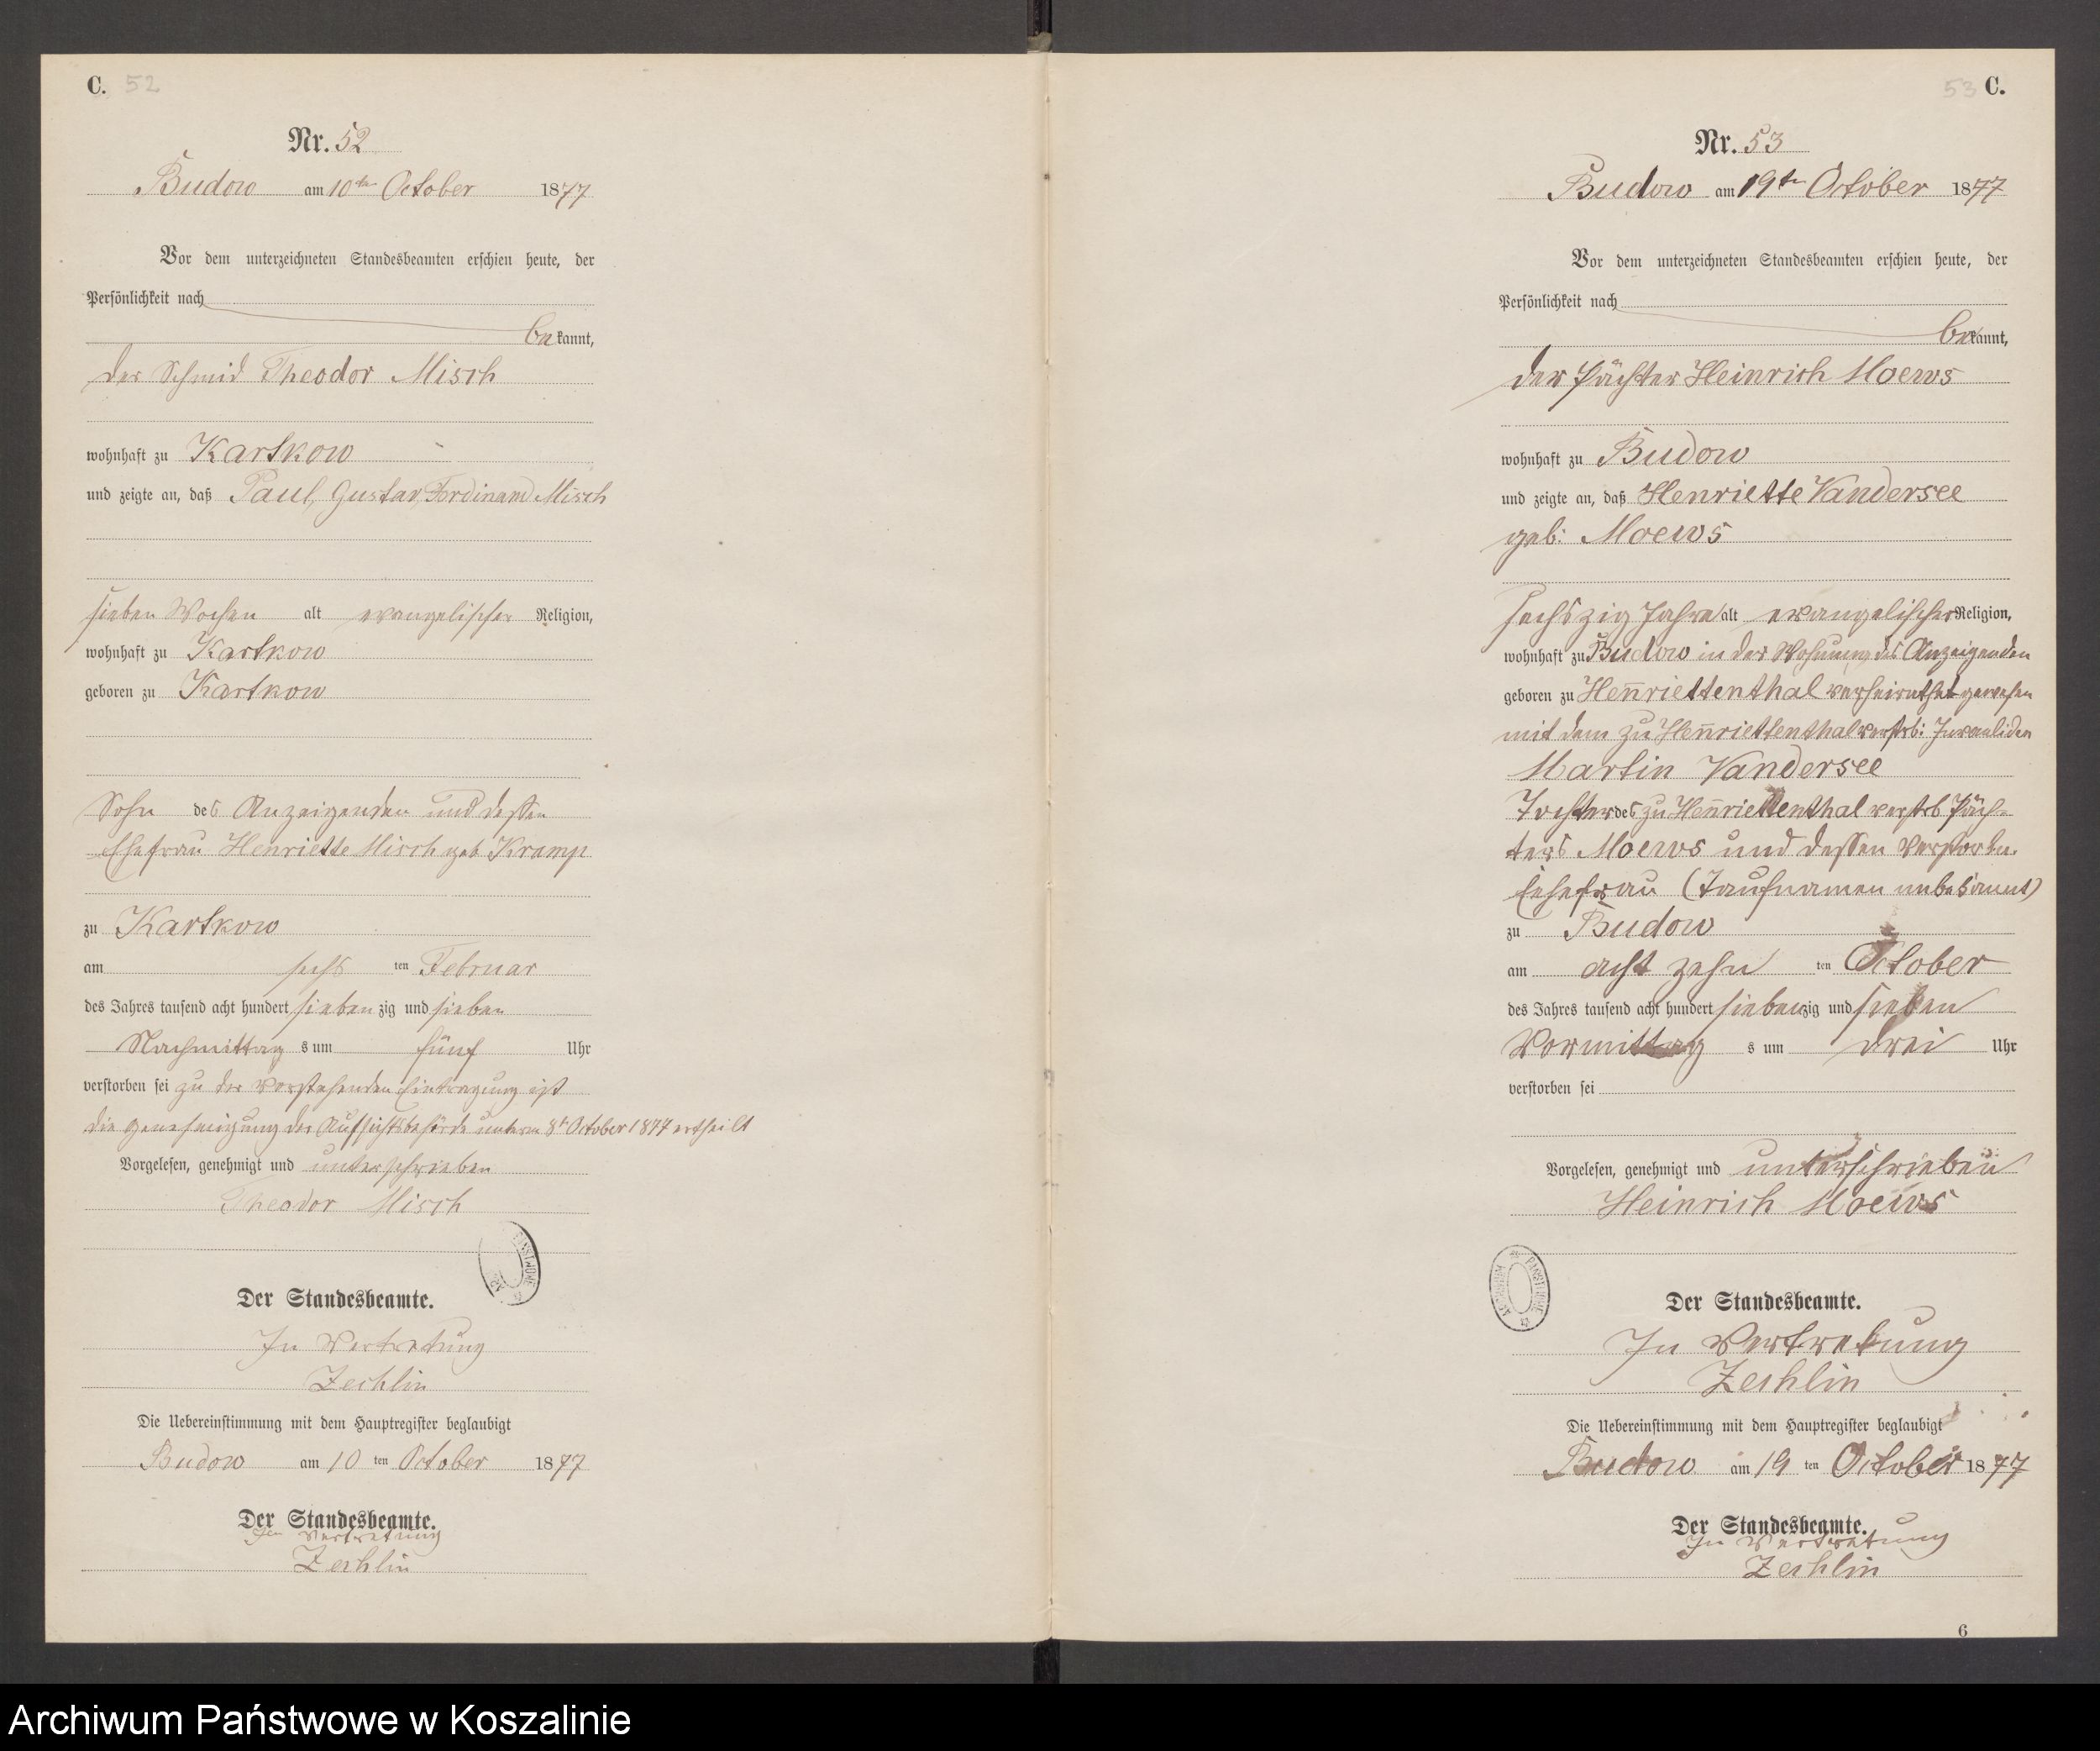 C. 52
Nr. 52
Budow am 10ten October 1877
Vor dem unterzeichneten Standesbeamten erschien heute, der
Persönlichkeit nach
bekannt,
der Schmid Theodor Misch
wohnhaft zu Kartkow
und zeigte an, daß Paul, Gustav, Ferdinand Misch
sieben Wochen alt evangelischer Religion,
wohnhaft zu Kartkow
geboren zu Kartkow
Sohn des Anzeigenden und dessen
Ehefrau Henriette Misch geb Kramp
zu Kartkow
am sechs ten Februar
des Jahres tausend acht hundert siebenzig und sieben
Nachmittag s um fünf Uhr
verstorben sei zu der vorstehenden Eintragung ist
die Genehmigung der Aufsichtsbehörde unterm 8t October 1877 ertheilt
Vorgelesen, genehmigt und unterschrieben
Theodor Misch
Der Standesbeamte.
In Vertretung
Zechlin
Die Uebereinstimmung mit dem Hauptregister beglaubigt
Budow am 10 ten October 1877
Der Standesbeamte.
In Vertretung
Zechlin
53 C.
Nr. 53
Budow am 19ten October 1877
Vor dem unterzeichneten Standesbeamten erschien heute, der
Persönlichkeit nach
bekannt,
der Pächter Heinrich Moews
wohnhaft zu Budow
und zeigte an, daß Henriette Vandersee
geb: Moews
sechszig Jahre alt evangelischer Religion,
wohnhaft zu Budow in der Wohnung des Anzeigenden
geboren zu Henriettenthal verheirathet gewesen
mit dem zu Henriettenthal verstrb: Invaliden
Martin Vandersee
Tochter des zu Henriettenthal verstrb Päch-
ters Moews und dessen verstorbn.
Ehefrau (Taufnamen unbekannt)
zu Budow
am acht zehn ten October
des Jahres tausend acht hundert siebenzig und sieben
Vormittag s um drei Uhr
verstorben sei
Vorgelesen, genehmigt und unterschrieben
Heinrich Moews
ARCHIWUM PAŃSTWOWE
Der Standesbeamte.
In Vertretung
Zechlin
Die Uebereinstimmung mit dem Hauptregister beglaubigt
Budow am 19 ten October 1877
Der Standesbeamte.
In Vertretung
Zechlin
6
Archiwum Państwowe w Koszalinie